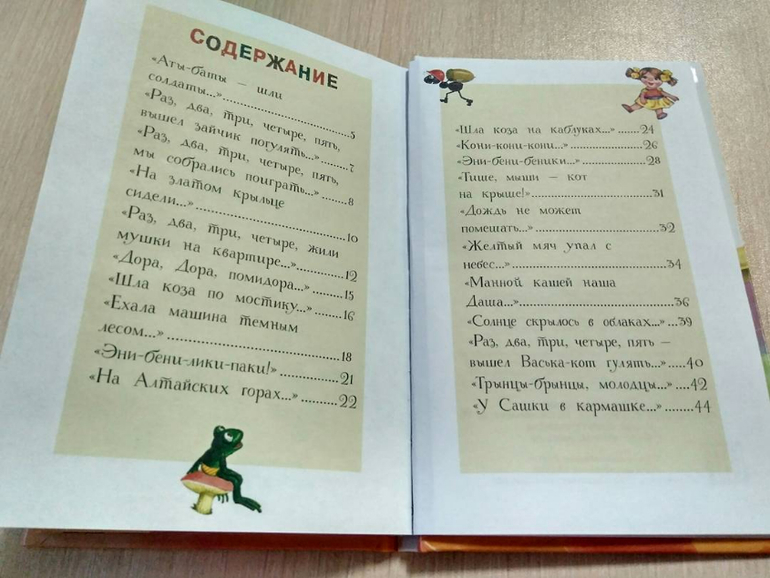 СОДЕРЖАНИЕ
«Аты-баты — шли
солдаты...»..........................5
«Раз, два, три, четыре, пять,
вышел зайчик погулять...»......7
«Раз, два, три, четыре, пять,
мы собрались поиграть...»......8
«На златом крыльце
сидели...»..........................10
«Раз, два, три, четыре, жили
мушки на квартире...»..........12
«Дора, Дора, помидора...»......15
«Шла коза по мостику...»......16
«Ехала машина темным
лесом...»..........................18
«Эни-бени-лики-паки!»..........21
«На Алтайских горах...»........22
«Шла коза на каблуках...»......24
«Кони-кони-кони...»..............26
«Эни-бени-беники...»............28
«Тише, мыши — кот
на крыше!»........................31
«Дождь не может
помешать...»......................32
«Желтый мяч упал с
небес...»..........................34
«Манной кашей наша
Даша...»..........................36
«Солнце скрылось в облаках...»..39
«Раз, два, три, четыре, пять —
вышел Васька-кот гулять...»....40
«Трынцы-брынцы, молодцы...»....42
«У Сашки в кармашке...»........44